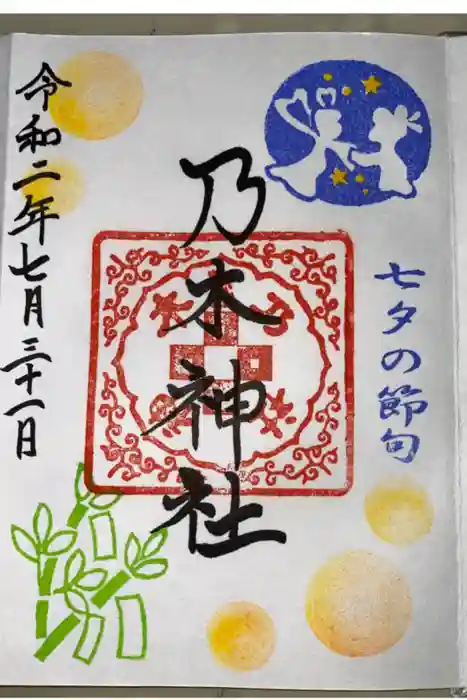 七夕の節句
乃木神社
令和二年七月三十一日